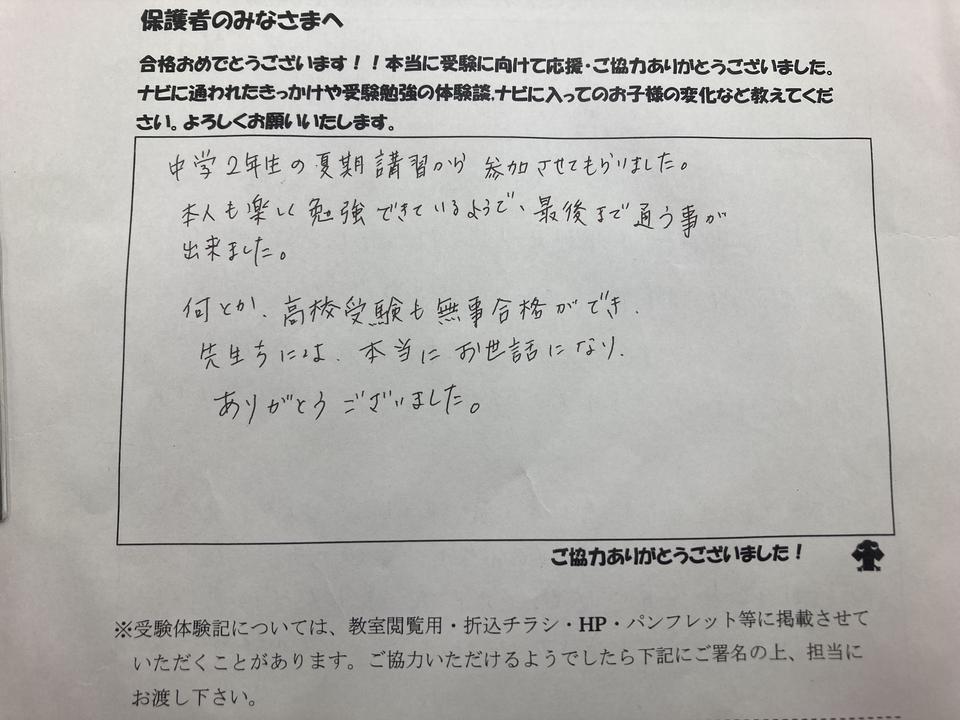 保護者のみなさまへ
合格おめでとうございます！！本当に受験に向けて応援・ご協力ありがとうございました。
ナビに通われたきっかけや受験勉強の体験談、ナビに入ってのお子様の変化など教えてくだ
さい。よろしくお願いいたします。
中学2年生の夏期講習から 参加させてもらいました。
本人も楽しく勉強できているようで、最後まで通う事が
出来ました。
何とか、高校受験も無事合格ができ、
先生方には、本当にお世話になり、
ありがとうございました。
ご協力ありがとうございました！
※受験体験記については、教室閲覧用・折込チラシ・HP・パンフレット等に掲載させて
いただくことがあります。ご協力いただけるようでしたら下記にご署名の上、担当に
お渡し下さい。